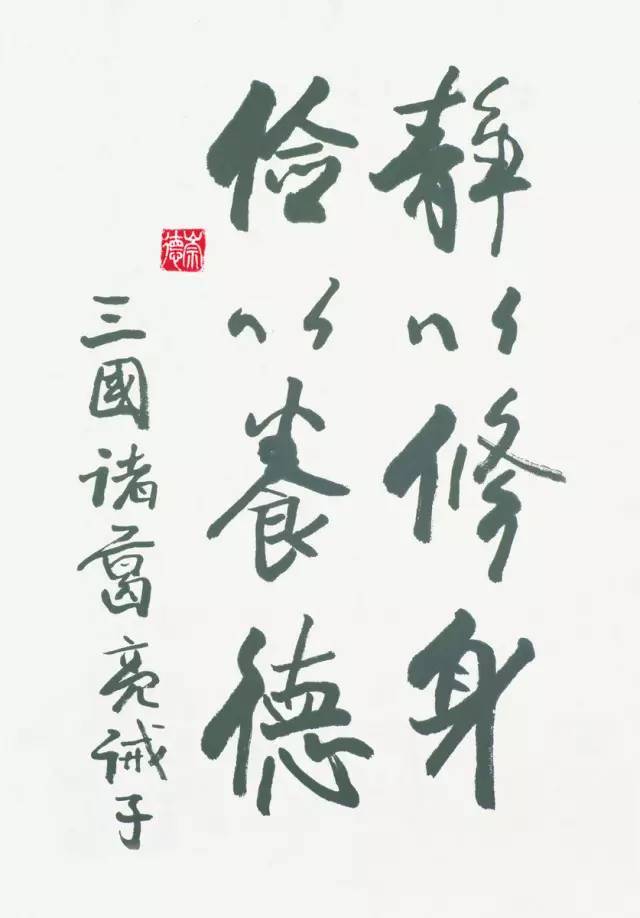 静以修身
俭以養德
三國诸葛亮诫子
崇德